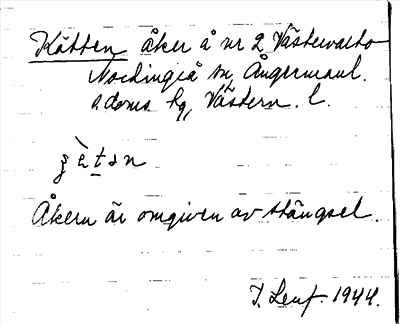 Kätten åker å nr 2 Västervalto
Nordingrå sn, Ångermanl.
adoms hg, Västern. l.
Åkern är omgiven av stängsel.
1944.